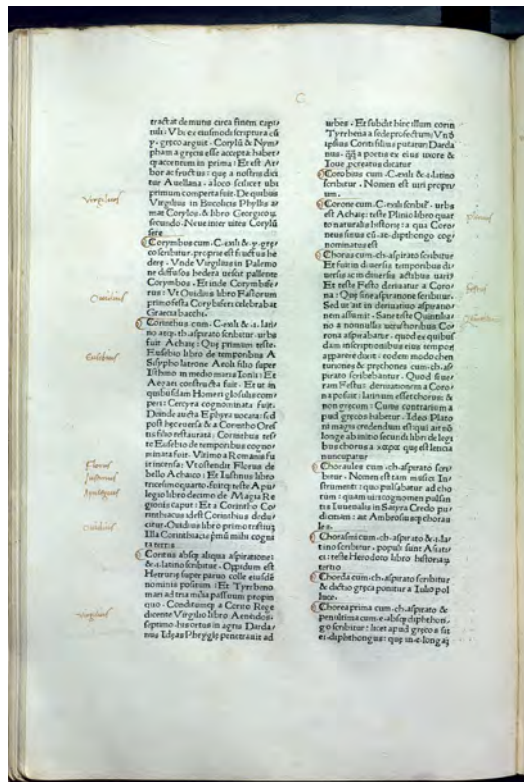 C
tractat de muris circa finem capi⸗
tuli: Vbi ex eiusmodi scriptura cũ
y. greco arguit. Corylũ & Nym⸗
pham a grecis esse accepta habet⸗
qz accentem in prima: Et est Ar⸗
bor ac fructus: que a nostris dici
tur Auellana. a loco scilicet ubi
primum comperta fuit. De quibus
Virgilius in Bucolicis Phyllis a⸗
mat Corylos. & libro Georgicoɽ
secundo. Neue inter uites Corylũ
sere
Corymbos cum. C. exili & .y. gre⸗
co scribitur. proprie est fructus he
dere. Vnde Virgilius in Palemo
ne diffusos hedera uestit pallente
Corymbos. Et inde Corymbife⸗
rus: Vt Ouidius libro Fastorum
primo festa Corybiferi celebrabat
Graecia bacchi.
Corinthus cum. C. exili & .i. lati⸗
no atqz. th. aspirato scribitur. urbs
fuit Achaię: Quę primum teste
Eusebio libro de temporibus A
Sisypho latrone Aeoli filio super
Isthmo in medio maris Ionii: Et
Aegaei constructa fuit. Et ut in
quibusdam Homeri glosulis com⸗
peri: Corcyra cognominata fuit.
Deinde aucta Ephyra uocata: sed
post hęc euersa & a Corintho Ores
tis filio restaurata: Corinthus tes⸗
te Eusebio de temporibus cogno⸗
minata fuit. Vltimo a Romanis fu
it incensa: Vt ostendit Florus de
bello Achaico: Et Iustinus libro
tricesimoquarto. fuitqz teste Apu⸗
legio libro decimo de Magia Re
gionis caput: Et a Corintho Co⸗
rinthiacus idest Corinthius dedu⸗
citur. Ouidius libro primo tristiuɽ
Illa Corinthiacis pĩmũ mihi cogni
ta terris
Coritus absqz aliqua aspiratione:
& .i. latino scribitur. Oppidum est
Hetrurię super paruo colle eiusdē
nominis positum: Et Tyrrheno
mari ad tria milia passuum propin
quo. Conditumqz a Corito Rege
dicente Virgilio libro Aeneidos.
septimo. his ortus in agris Darda⸗
nus Idęas Phrygię penetrauit ad
urbes. Et subdit hinc illum corin
Tyrrhena a sede profectum: Vnđ
ipsius Coriti filius putatur Darda
nus. q̃q̃ a poetis ex eius uxore &
Ioue procreatus dicatur
Corobius cum. C. exili & .i. latino
scribitur. Nomen est uiri propri⸗
um.
Corone cum. C. exili scribit̃. urbs
est Achaię: teste Plinio libro quar
to naturalis historię: a qua Coro⸗
neus sinus cũ. ae. dipthongo cog⸗
nominatus est
Chorus cum. ch. aspirato scribitur
Et fuit in diuersis temporibus di⸗
uersis ac in diuersis actibus uarii⸗
Et teste Festo deriuatur a Coro⸗
na: Quę sine aspiratione scribitur.
Sed ut ait in deriuatiuo aspiratio⸗
nem assumit. Sane teste Quintilia⸗
no a nonnullis uetustioribus Co⸗
rona aspirabatur. quod ex quibus
dam inscriptionibus eius temporis
apparere dixit: eodem modo chen
turiones & pręchones cum. ch. as⸗
pirato scribebantur. Quod si ue⸗
ram Festus deriuationem a Coro⸗
na posuit: latinum esset chorus: &
non grecum: Cuius contrarium a
pud grecos habetur. Ideo Plato
ni magis credendum est qui ait nõ
longe ab initio secundi libri de legi
bus chorus a χαρας quę est lęticia
nuncupatur
Choraules cum. ch. aspirato scri⸗
bitur. Nomen est tam musici In⸗
strumenti: quo pulsabatur ad cho
rum: quam uiri: cognomen pulsan
tis Iuuenalis in Satyra Credo pu⸗
dicitiam: aut Ambrosiusqz chorau
les.
Chorasmi cum. ch. aspirato & .i. la⸗
tino scribitur. populi sunt Asiati⸗
ci: teste Herodoto libro historiaɽ
tertio
Chorda cum. ch. aspirato scribitur
& dictio greca ponitur a Iulio pol
luce.
Chorea prima cum. ch. aspirato &
penultima cum. e. absqz diphthon⸗
go scribitur: licet apud gręcos sit
ei. diphthongus: quę in. e. longaɜ
Virgilius
Ouidius
Eusebius
Florus
Iustinus
Apulegius
Ouidius
Virgilius
plinius
festus